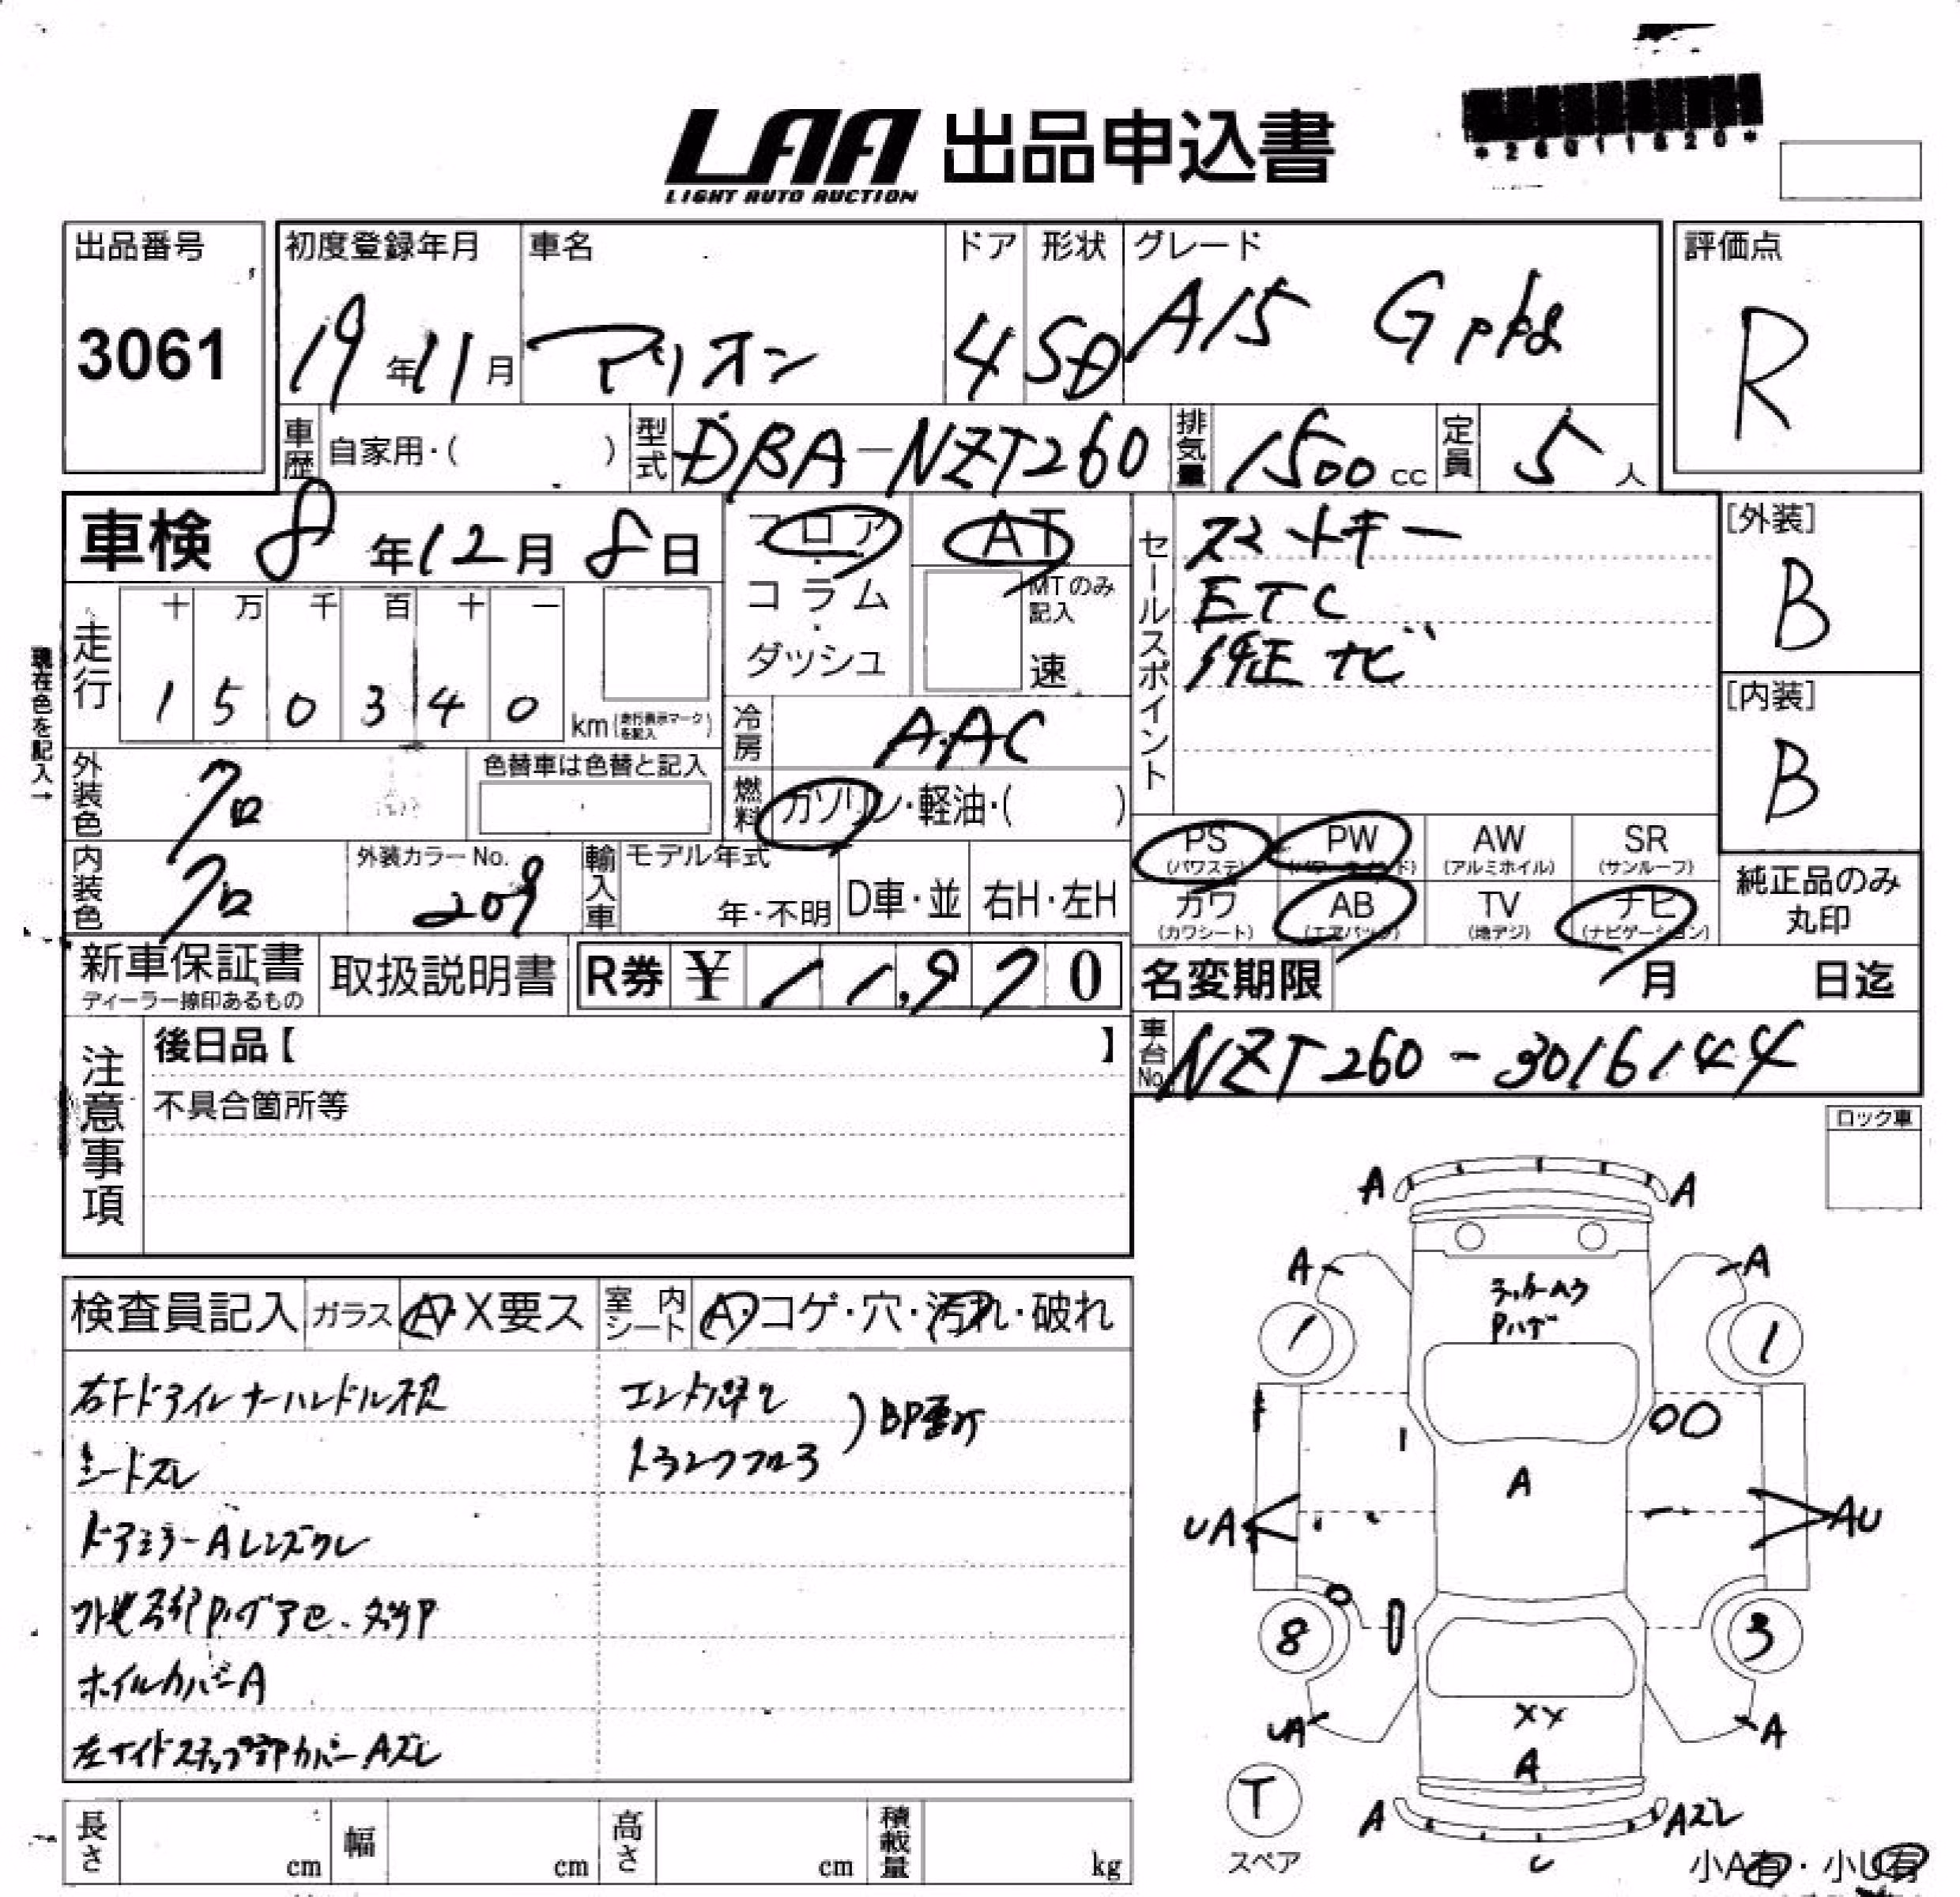 *26011620*
LAA 出品申込書
LIGHT AUTO AUCTION
出品番号
3061
初度登録年月
19年11月
車名
アリオン
ドア
4
形状
SD
グレード
A15 G pkg
評価点
R
車歴 自家用・( )
型式 DBA-NZT260
排気量 1500 cc
定員 5 人
車検 8年12月8日
フロア・コラム・ダッシュ
AT
MTのみ記入
速
セールスポイント
スマートキー
ETC
純正ナビ
[外装]
B
[内装]
B
現在色を記入→
走行
十 万 千 百 十 一
1 5 0 3 4 0
km (走行表示マークを記入)
冷房 AAC
燃料 ガソリン・軽油・( )
外装色 クロ
色替車は色替と記入
内装色 クロ
外装カラーNo.
209
輸入車
モデル年式
年・不明
D車・並
右H・左H
PS (パワステ)
PW (パワーウインド)
AW (アルミホイル)
SR (サンルーフ)
カワ (カワシート)
AB (エアバック)
TV (地デジ)
ナビ (ナビゲーション)
純正品のみ
丸印
新車保証書
ディーラー捺印あるもの
取扱説明書
R券 ¥ 11,970
名変期限 月 日迄
車台No. NZT260-3016144
注意事項
後日品【 】
不具合箇所等
ロック車
検査員記入
ガラス A・X要ス
室内シート A・コゲ・穴・汚れ・破れ
右Fドアインナーハンドル不良
シートスレ
ドアミラーAレンズワレ
外装 Pハゲ アセ・タッチP
ホイルカバーA
左サイドステップ部カバーAズレ
エンドパネル
トランクフロア
) BP歪み
A
A
A
A
Pハゲ
1
1
A
UA
AU
8
3
UA
XX
A
A
A
Aズレ
U
T
スペア
小A有・小U有
長さ cm
幅 cm
高さ cm
積載量 kg